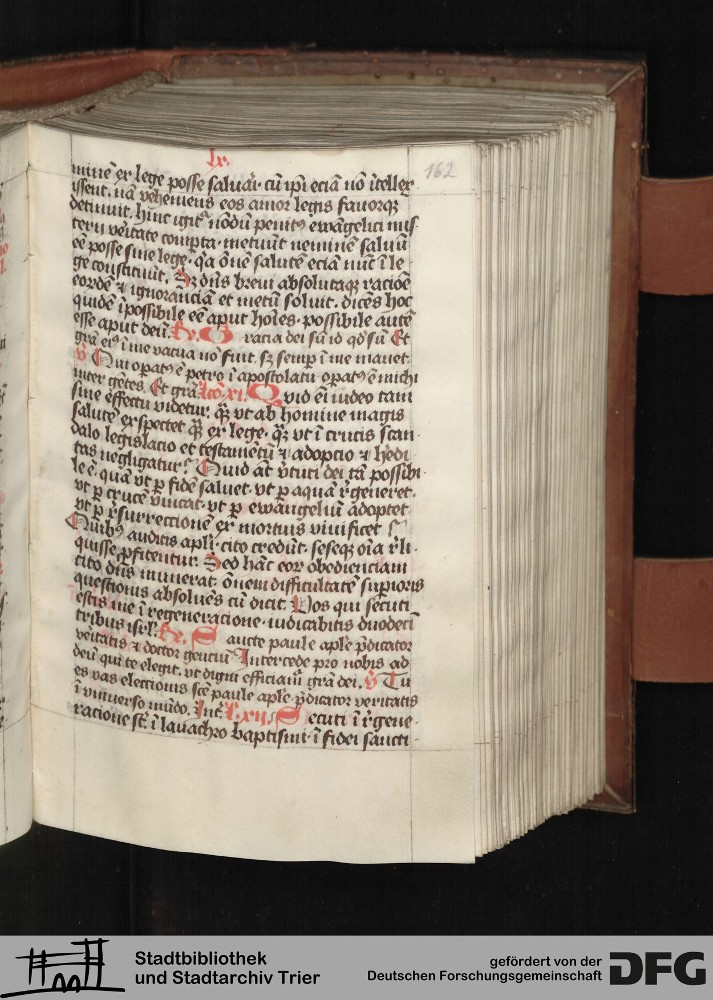 lx.
162
minē ex lege posse saluari· cū ip̄i eciā nō ītellex
issent. nā vehemens eos amor legis fauorq̄
detinuit. hinc igit᷑ nōdū penit⁹ ewāgelici mis
terij vēritate comp̄ta· metuūt neminē saluū
eē posse sine lege· q̄a ōnē salutē eciā nūc ī le
ge constituūt. Sz dn̄s breui absolutaq̄ racōe
eorūdē ⁊ ignoranciā et metū soluit. dicēs hoc
quidē īpossibile eē aput hoīes· possibile autē
esse aput deū. Rx. Gracia dei sū id qd̓ sū Et
grā ei⁹ ī me vacua nō fuit. sz semp̄ ī me manet·
v̓ Qui opat⁹ ē petro ī apostolatū· opat⁹ ē michi
inter gētes. Et grā. Lcō. xi. Quid eī iudeo tam
sine effectu videtur· q̄ȝ vt ab homine magis
salutē exspectet q̄ȝ ex lege· q̄ȝ vt ī crucis scan·
dalo legislacio et testamētū ⁊ adopcio ⁊ hedi
tas negligatur? Quid at̄ v̓tuti dei tā possibi·
le ē· quā vt p̱ fidē saluet· vt p̱ aquā r̓generet·
vt p̱ crucē vīncat· vt p̱ ewangeliū adoptet
vt p̱ r̓surrectionē ex mortuis viuificet?
Quib⁹ auditis ap̄li· cito credūt· seseq̄ oīa r̓li·
quisse p̄fitentur. Sed hāc eor̄ obedienciam
cito dn̄s munerat· ōnem difficultatē sup̱ioris
questionis absoluēs cū dicit. Vos qui secuti
estis me ī regeneracione· iudicabitis duodecī
tribus isrl̄. Rx. Sancte paule ap̄le p̄dicator
vēritatis ⁊ doctor gentiū Intercede pro nobis ad
deū qui te elegit. vt digni efficiam̄ grā dei. v̓ Tu
es vas eleccionis sc̄e paule ap̄le p̄dicator veritatis
ī vniuerso mūdo. Int̄. L. xij. Secuti ī r̓gene·
racione sc̄ ī lauachro baptismi· ī fidei sancti·
Stadtbibliothek
und Stadtarchiv Trier
gefördert von der
Deutschen Forschungsgemeinschaft
DFG